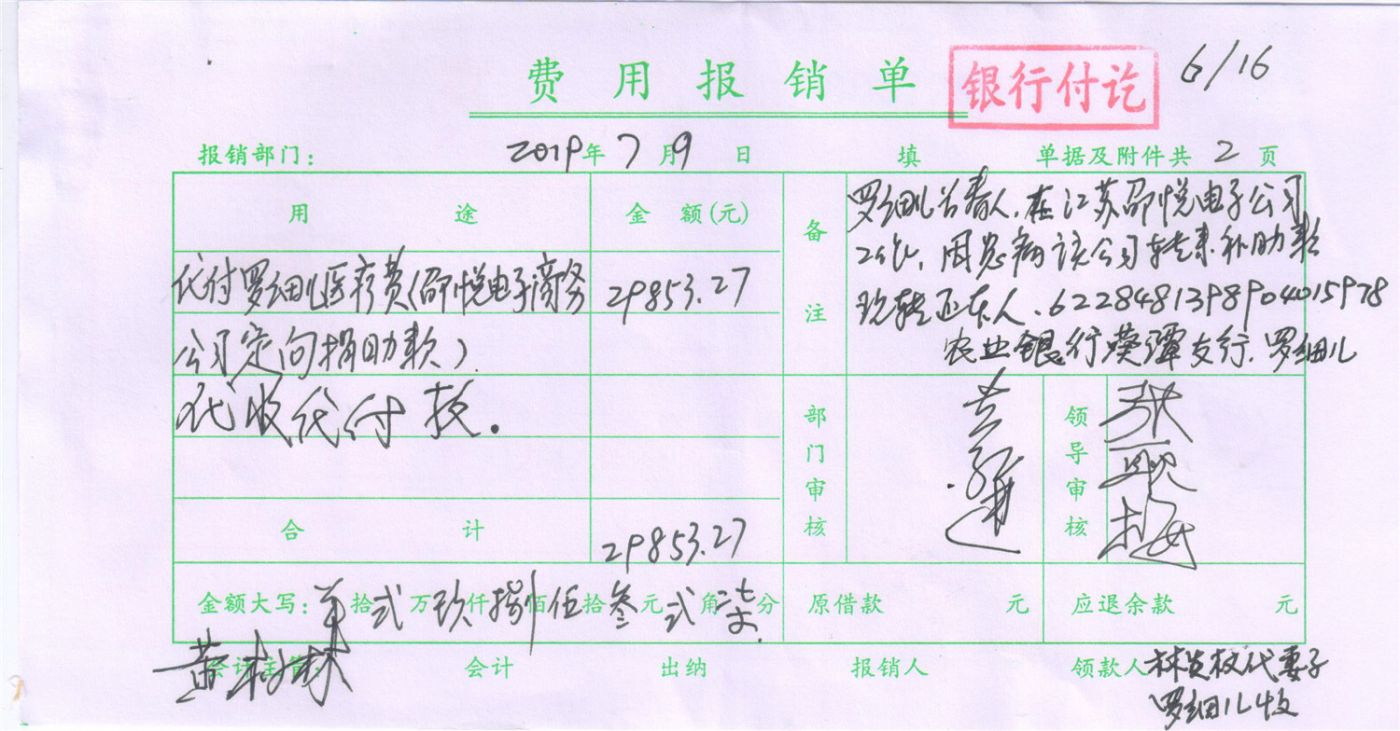 费用报销单
银行付讫
6/16
报销部门: 2019年7月9日 填 单据及附件共2页
用途
金额(元)
备注
罗细儿 人,在江苏邵悦电子公司
,因患病该公司转来补助款
现转还本人.6228481398904015978
农业银行葵潭支行.罗细儿
代付罗细儿医疗费(邵悦电子商务
29853.27
公司定向捐助款)
代收代付款.
部门审核
领导审核
合计
29853.27
金额大写: 拾贰万玖仟捌佰伍拾叁元贰角柒分
原借款 元
应退余款 元
会计主管
会计
出纳
报销人
领款人 代妻子
罗细儿收